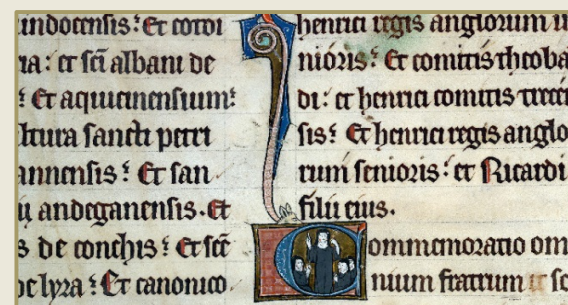 indocensis : Et cordi
na : et sci albani de
: Et aquicinensium :
ltura sancti petri
annensis : Et san
ii andeganensis . Et
s de conchis : Et scē
de lyra : Et canonico
henrici regis anglorum iu
nioris : Et comitis theoba
di : et henrici comitis trecen
sis : Et henrici regis anglo
rum senioris : et Ricardi
filii eius .
Commemoratio om
nium fratrum